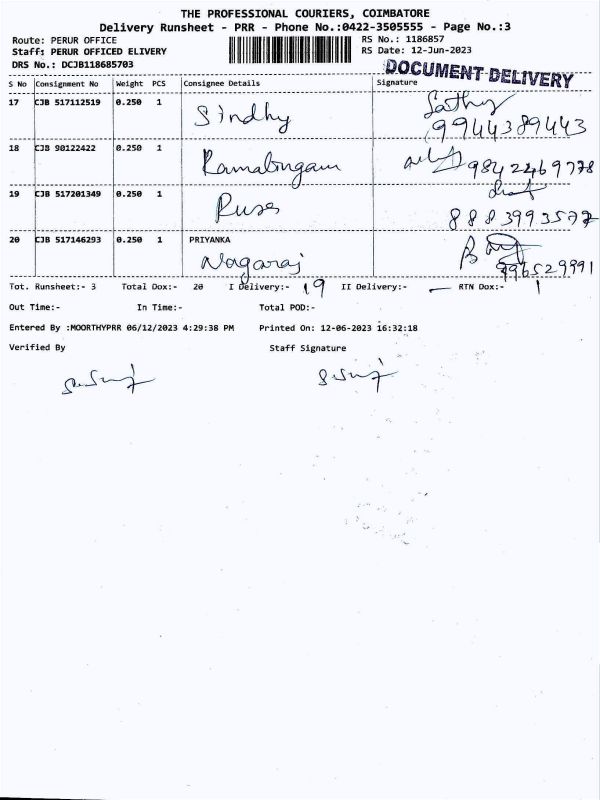 THE PROFESSIONAL COURIERS, COIMBATORE
Delivery Runsheet - PRR - Phone No.:0422-3505555 - Page No.:3
Route: PERUR OFFICE RS No.: 1186857
Staff: PERUR OFFICED ELIVERY RS Date: 12-Jun-2023
DRS No.: DCJB118685703 DOCUMENT DELIVERY
S No Consignment No Weight PCS Consignee Details Signature
17 CJB 517112519 0.250 1 Sindhy Sathy
9944389443
18 CJB 90122422 0.250 1 Ramalingam 9842469778
19 CJB 517201349 0.250 1
8883993577
20 CJB 517146293 0.250 1 PRIYANKA
Nagaraj
Tot. Runsheet:- 3 Total Dox:- 20 I Delivery:- 19 II Delivery:- — RTN Dox:- 1
Out Time:- In Time:- Total POD:-
Entered By :MOORTHYPRR 06/12/2023 4:29:38 PM Printed On: 12-06-2023 16:32:18
Verified By Staff Signature